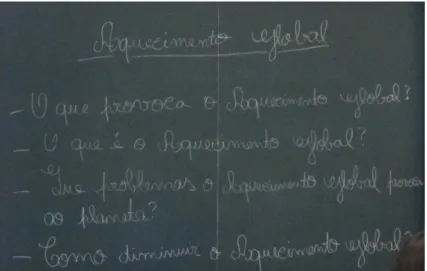 Aquecimento global
- O que provoca o Aquecimento global?
- O que é o Aquecimento global?
- Que problemas o Aquecimento global
ao planeta?
- Como diminuir o Aquecimento global?